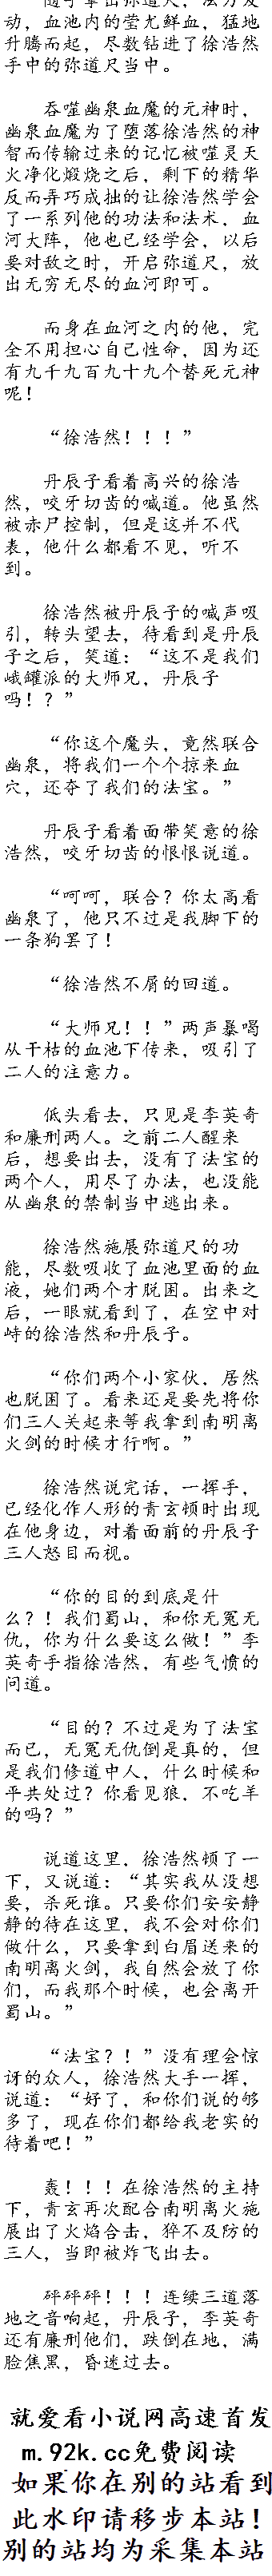 随手拿出弥道尺，法力发
动，血池内的莹尤鲜血，猛地
升腾而起，尽数钻进了徐浩然
手中的弥道尺当中。
吞噬幽泉血魔的元神时，
幽泉血魔为了堕落徐浩然的神
智而传输过来的记忆被噬灵天
火净化煅烧之后，剩下的精华
反而弄巧成拙的让徐浩然学会
了一系列他的功法和法术，血
河大阵，他也已经学会，以后
要对敌之时，开启弥道尺，放
出无穷无尽的血河即可。
而身在血河之内的他，完
全不用担心自己性命，因为还
有九千九百九十九个替死元神
呢！
“徐浩然！！！”
丹辰子看着高兴的徐浩
然，咬牙切齿的喊道。他虽然
被赤尸控制，但是这并不代
表，他什么都看不见，听不
到。
徐浩然被丹辰子的喊声吸
引，转头望去，待看到是丹辰
子之后，笑道：“这不是我们
峨罐派的大师兄，丹辰子
吗！？”
“你这个魔头，竟然联合
幽泉，将我们一个个掠来血
穴，还夺了我们的法宝。”
丹辰子看着面带笑意的徐
浩然，咬牙切齿的恨恨说道。
“呵呵，联合？你太高看
幽泉了，他只不过是我脚下的
一条狗罢了！
“徐浩然不屑的回道。
“大师兄！！”两声暴喝
从干枯的血池下传来，吸引了
二人的注意力。
低头看去，只见是李英奇
和廉刑两人。之前二人醒来
后，想要出去，没有了法宝的
两个人，用尽了办法，也没能
从幽泉的禁制当中逃出来。
徐浩然施展弥道尺的功
能，尽数吸收了血池里面的血
液，她们两个才脱困。出来之
后，一眼就看到了，在空中对
峙的徐浩然和丹辰子。
“你们两个小家伙，居然
也脱困了。看来还是要先将你
们三人关起来等我拿到南明离
火剑的时候才行啊。”
徐浩然说完话，一挥手，
已经化作人形的青玄顿时出现
在他身边，对着面前的丹辰子
三人怒目而视。
“你的目的到底是什
么？！我们蜀山，和你无冤无
仇，你为什么要这么做！”李
英奇手指徐浩然，有些气愤的
问道。
“目的？不过是为了法宝
而已，无冤无仇倒是真的，但
是我们修道中人，什么时候和
平共处过？你看见狼，不吃羊
的吗？”
说道这里，徐浩然顿了一
下，又说道：“其实我从没想
要，杀死谁。只要你们安安静
静的待在这里，我不会对你们
做什么，只要拿到白眉送来的
南明离火剑，我自然会放了你
们，而我那个时候，也会离开
蜀山。”
“法宝？！”没有理会惊
讶的众人，徐浩然大手一挥，
说道：“好了，和你们说的够
多了，现在你们都给我老实的
待着吧！”
轰！！！在徐浩然的主持
下，青玄再次配合南明离火施
展出了火焰合击，猝不及防的
三人，当即被炸飞出去。
砰砰砰！！！连续三道落
地之音响起，丹辰子，李英奇
还有廉刑他们，跌倒在地，满
脸焦黑，昏迷过去。
就爱看小说网高速首发
m.92k.cc免费阅读
如果你在别的站看到
此水印请移步本站！
别的站均为采集本站